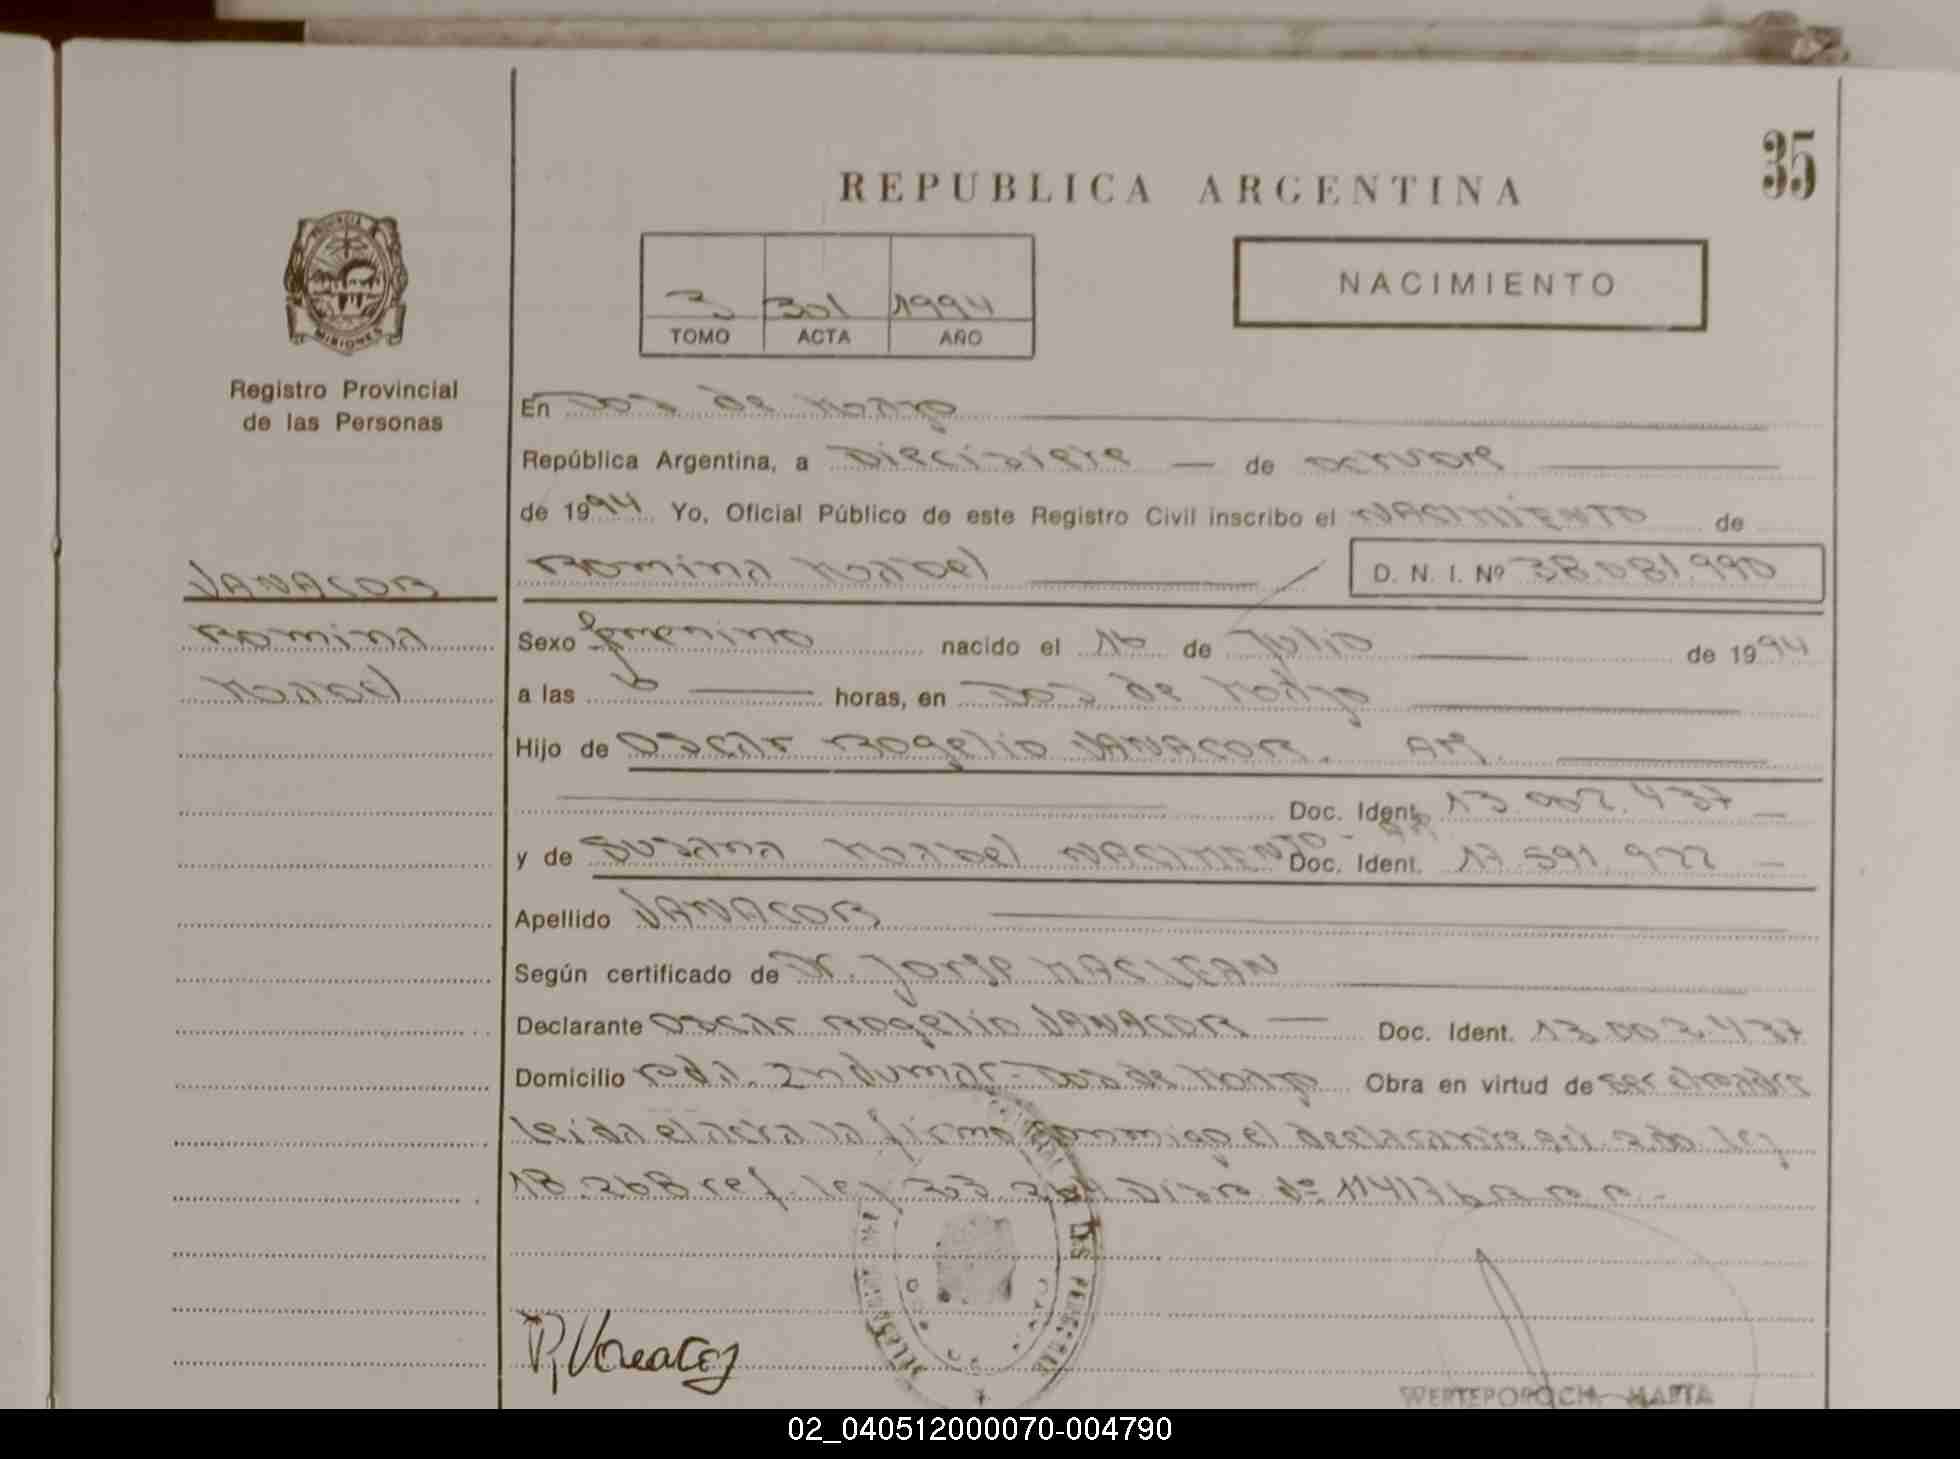 35
REPUBLICA ARGENTINA
PROVINCIA
MISIONES
Registro Provincial
de las Personas
NACIMIENTO
3 301 1994
TOMO ACTA AÑO
En Dos de Mayo
República Argentina, a Diecisiete — de octubre
de 1994 Yo, Oficial Público de este Registro Civil inscribo el NACIMIENTO de
Romina Mabel D. N. I. Nº 38.081.990
VANACOR
Romina
Mabel
Sexo femenino nacido el 16 de Julio de 1994
a las 6 horas, en Dos de Mayo
Hijo de Oscar Rogelio VANACOR. Ar.
Doc. Ident. 13.002.437 —
y de Susana Mabel NACIMENTO - Ar. Doc. Ident. 17.591.922 —
Apellido VANACOR
Según certificado de Dr. Jorge MACLEAN
Declarante Oscar Rogelio VANACOR — Doc. Ident. 13.002.437
Domicilio Pda. Indumar - Dos de Mayo Obra en virtud de ser el padre
Leida el acta la firma conmigo el declarante art. 2do. ley
18.268 ref. ley 23.264 Disp. Nº
P, Vanacor
02_040512000070-004790